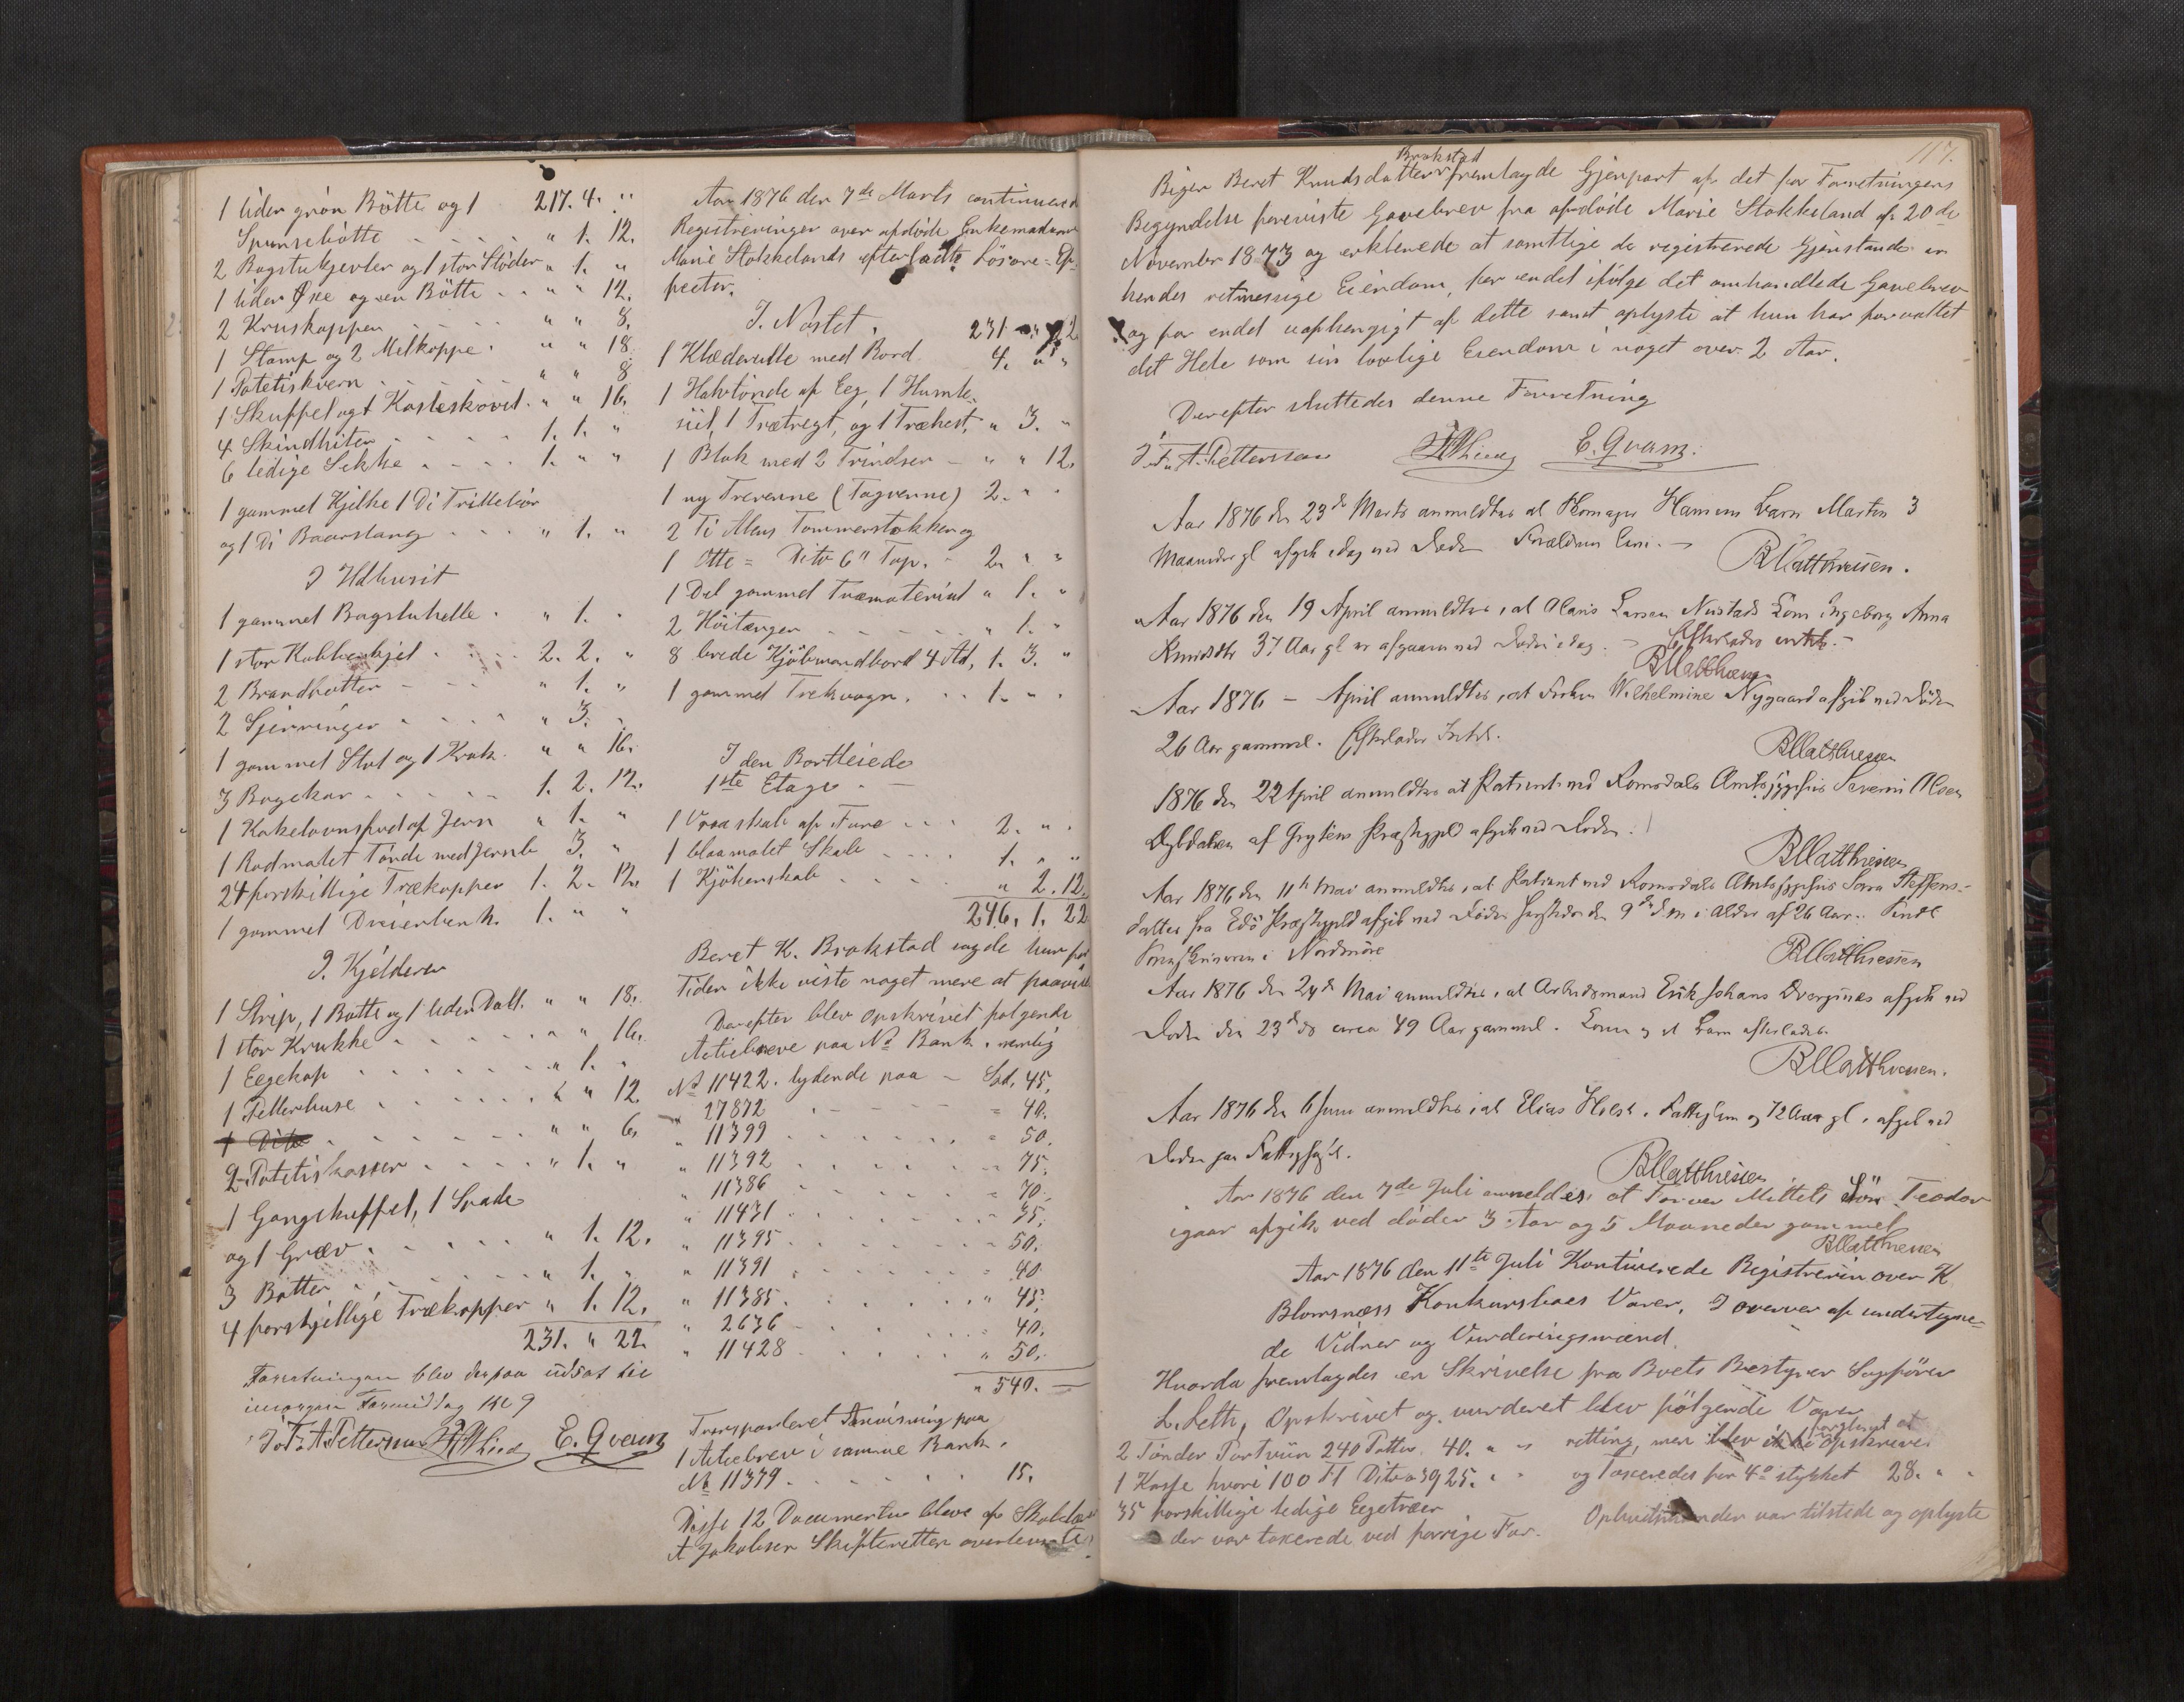 1 liden grön Bötte og 1 217. 4. "
Spunsebötte " 1. 12.
2 Bagstukjevler og 1 stor Stöder " 1. "
1 liden Øse og en Bötte " " 12.
2 Kruskopper " " 8.
1 Stamp og 2 Melkoppe " " 18
1 Potetiskvern " " 8
1 Skuffel og 1 Kasteskovel " " 16.
4 Skindhiter 1. 1. "
6 ledige Sekke 1. " "
1 gammel Kjelke 1 Di Trillebör
og 1 Di Baarstang " 1. "
I Ildhusit
1 gammel Bagstuhelle " 1. "
1 stor Kobberkjel 2. 2. "
2 Brandbötter " 1. "
2 Gjerringer " 3. "
1 gammel Stol og 1 Krak " " 16.
3 Bagekar 1. 2. 12.
1 Kakelovnsfod af Jern " 1. "
1 Rodmalet Tönde med Jernb 3. "
24 forskillige Trækopper 1. 2. 12.
1 gammel Dreierbenk 1. " "
I. Kjelderen
1 Strip, 1 Botte og 1 liden Dall. " " 18.
1 stor Krukke " " 16.
1 Eegekop " 1. "
1 Pellerhuse " " 12.
1 Dito " " 6.
2 Potetiskasser " 1. "
1 Gangskuffel, 1 Spade
og 1 Græv " 1. 12.
3 Botter " 1. "
4 forskjellige Trækopper " 1. 12.
231. " 22.
Forretningen blev derpaa udsat til
imorgen Formiddag Kl 9
J. F. A. Petterson E. Qvam
Aar 1876 den 7de Marts continuered
Registreringen over afdöde Enkemadame
Marie Stokkelands efterladte Lösöre-Ef-
fecter.
I. Nöstet. 231 " 22
1 Klæderulle med Bord 4. " "
1 Halvtönde af Eeg, 1 Humle-
siil, 1 Trætregt, og 1 Træhest, " 3. "
1 Blok med 2 Trindser " " 12.
1 ny Trevenne (Tagvenne) 2. " "
2 Ti Alens Tömmerstokker og
1 Otte = Dito 6" Top. 2. " "
1 Del gammel Træmaterial " 1. "
2 Höitænger " 1. "
8 brede Kjöbmandbord 4 Al, 1. 3. "
1 gammel Trekvogn. 1. " "
I den Bortleiede
1ste Etage
1 Vraaskab af Furo 2. " "
1 blaamalet Skab 1. " "
1 Kjökenskab " 2. 12.
246. 1. 22
Beret K. Brokstad sagde hun for
Tiden ikke viste noget mere at paavise
Derefter blev opskrivet folgende
Actiebreve paa No Bank, nemlig
No 11422. lydende paa Spd. 45.
" 27872 " 40.
" 11399 " 50.
" 11392 " 75.
" 11386 " 70.
" 11431 " 35.
" 11395 " 50.
" 11391 " 40
" 11385 " 45.
" 2636 " 40.
" 11428 " 50.
" 540. —
Transporteret Anvisning paa
1 Actiebrev i samme Bank.
No 11379 15.
Disse 12 Documenter bleve af Skolelærer
A Jakobsen Skifteretten overleverte.
117.
Brokstad
Pigen Beret Knudsdatter fremlagde Gjenpart af det for Forretningens
Begyndelse foreviste Gavebrev fra afdöde Marie Stokkeland af 20de
November 1873 og erklærede at samtlige de registrerede Gjenstande er
hendes retmessige Eiendom, for endel ifölge det omhandlede Gavebrev
og for endel uafhengigt af dette samt oplyste at hun har forvaltet
det Hele som sin lovlige Eiendom i noget over 2 Aar.
Derefter sluttedes denne Forretning
J. F. A. Petterson E. Qvam.
Aar 1876 den 23de Marts anmeldtes at Skomager Hansens Barn Martin 3
Maaneder gl afgik idag ved Döden Forældrene leve. —
B Matthiesen.
Aar 1876 den 19 April anmeldtes, at Olaus Larsen Nustads Kone Ingeborg Anna
Knudsdtr 37 Aar gl er afgaaen ved Döden idag. — Efterlader
B Matthiesen
Aar 1876 — April anmeldtes, at Wilhelmine Nygaard afgik ved Döden
26 Aar gammel. Efterlader
B Matthiesen
1876 den 22 April anmeldtes at Patient ved Romsdals Amtssygehus Severin Olsen
af Grytens Præstegjeld afgik ved Döden.
B Matthiesen
Aar 1876 den 11te Mai anmeldtes, at Patient ved Romsdals Amtssygehus Sara Steffens-
datter fra Edö Præstegjeld afgik ved Döden den 9de d.m. i Alder af 26 Aar.
i Nordmöre
B Matthiesen
Aar 1876 den 24de Mai anmeldtes, at Arbeidsmand Erik Johans Dvergsnæs afgik ved
Döden den 23de ds circa 49 Aar gammel. Kone og et Barn efterlades.
B Matthiesen.
Aar 1876 den 6 Juni anmeldtes, at Elias Holst, Fattiglem og 72 Aar gl, afgik ved
Döden paa
B Matthiesen
Aar 1876 den 7de Juli anmeldes at Farver Mittets Sön Teodor
igaar afgik ved döden 3 Aar og 5 Maaneder gammel
B Matthiesen
Aar 1876 den 11te Juli Kontinerede Registrerin over K
Blomsnæss Konkursboes Varer, I overver af undertegne-
de Vidner og Vurderingsmænd.
Hvorda fremlagdes en Skrivelse fra Boets Bestyrer Sagförer
L. Leth, Opskrivet og vurderet blev fölgende Varer
2 Tönder Portviin 240 Potter 40. " "
1 Kasse hvori 100 Fl Dito 25. " "
35 forskillige ledige Eegetræer
der var takerede ved forrige For-
retting, men blev ikke opskreve
og Takseredes for 4 stykket 28. " "
var tilstede og oplyste